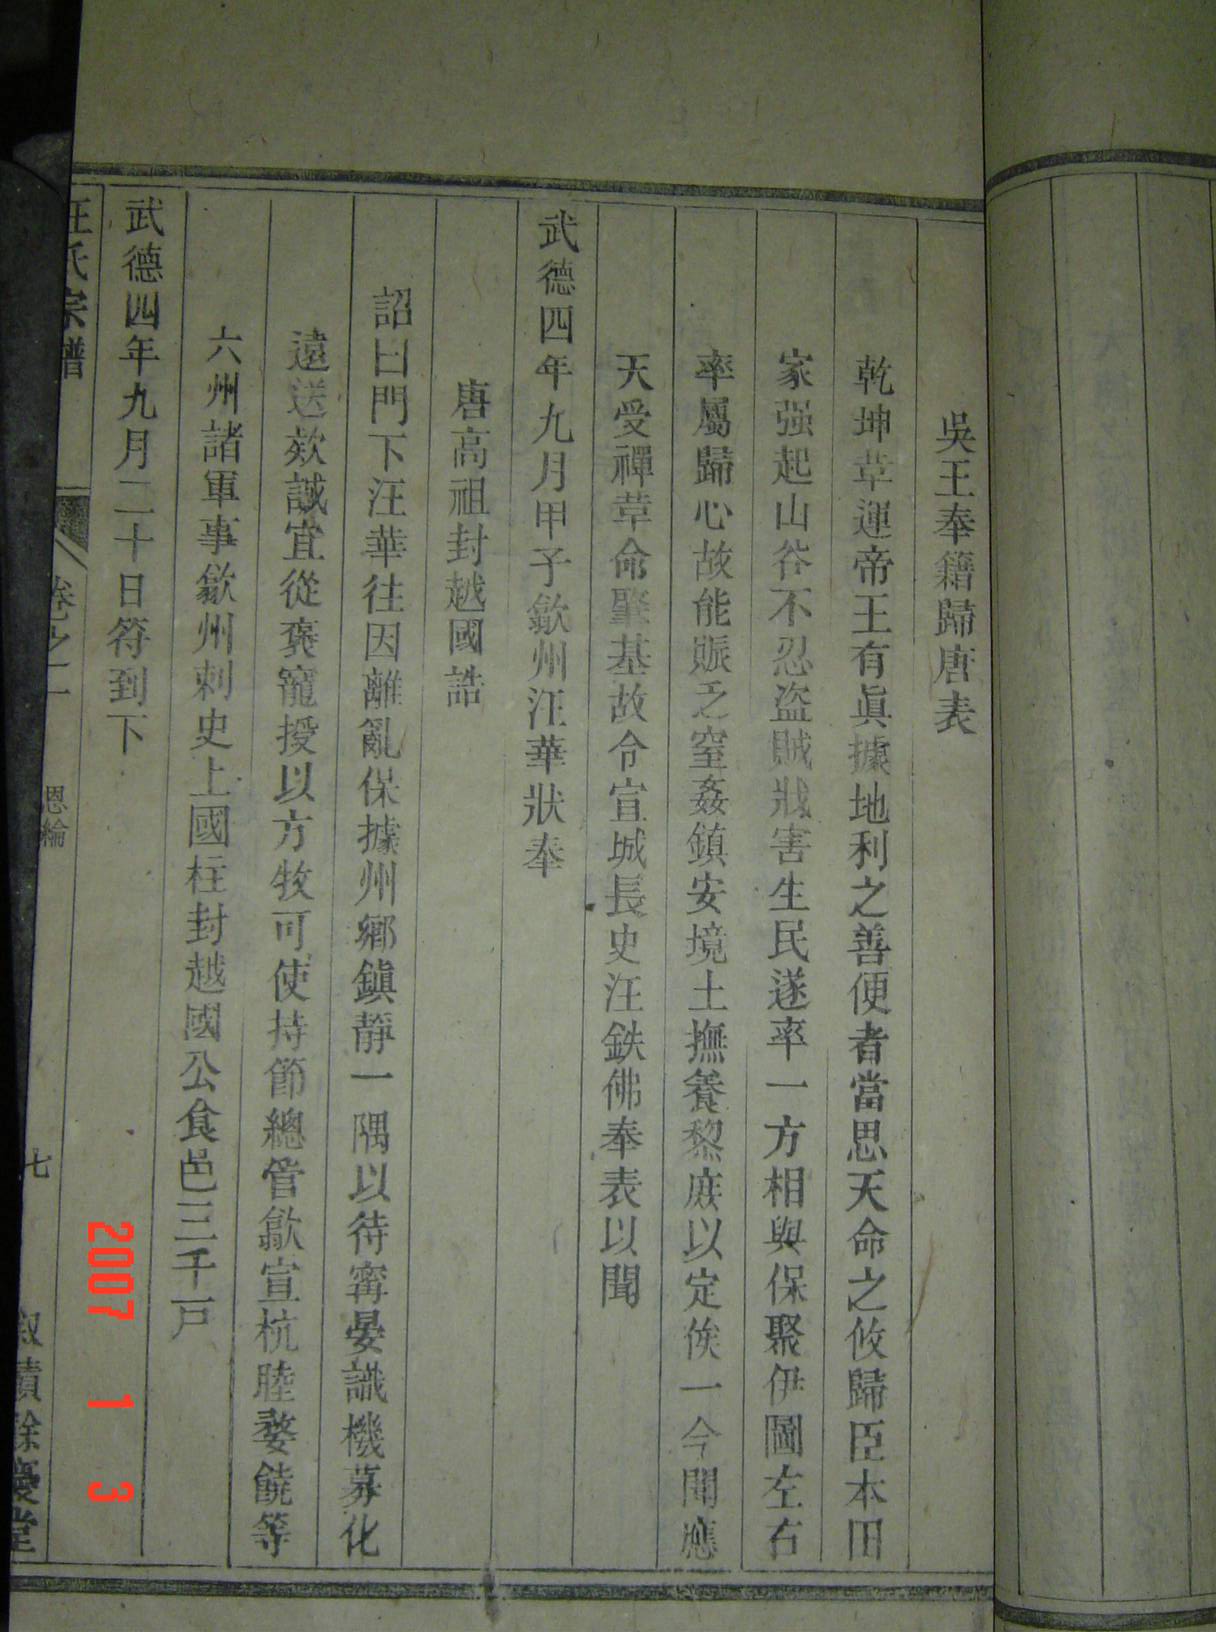 吳王奉籍歸唐表
乾坤革運帝王有眞據地利之善便者當思天命之攸歸臣本田
家强起山谷不忍盜賊戕害生民遂率一方相與保聚伊圖左右
率屬歸心故能賑乏窒姦鎮安境土撫養黎庶以定俟一今聞應
天受禪革命肇基故令宣城長史汪鉄佛奉表以聞
武德四年九月甲子歙州汪華狀奉
唐高祖封越國誥
詔曰門下汪華往因離亂保據州鄉鎭靜一隅以待甯晏識機慕化
遠送欵誠宜從褒寵授以方牧可使持節總管歙宣杭睦婺饒等
六州諸軍事歙州刺史上國柱封越國公食邑三千戸
武德四年九月二十日符到下
汪氏宗譜 卷之一 恩綸 七 敍積餘慶堂
2007 1 3